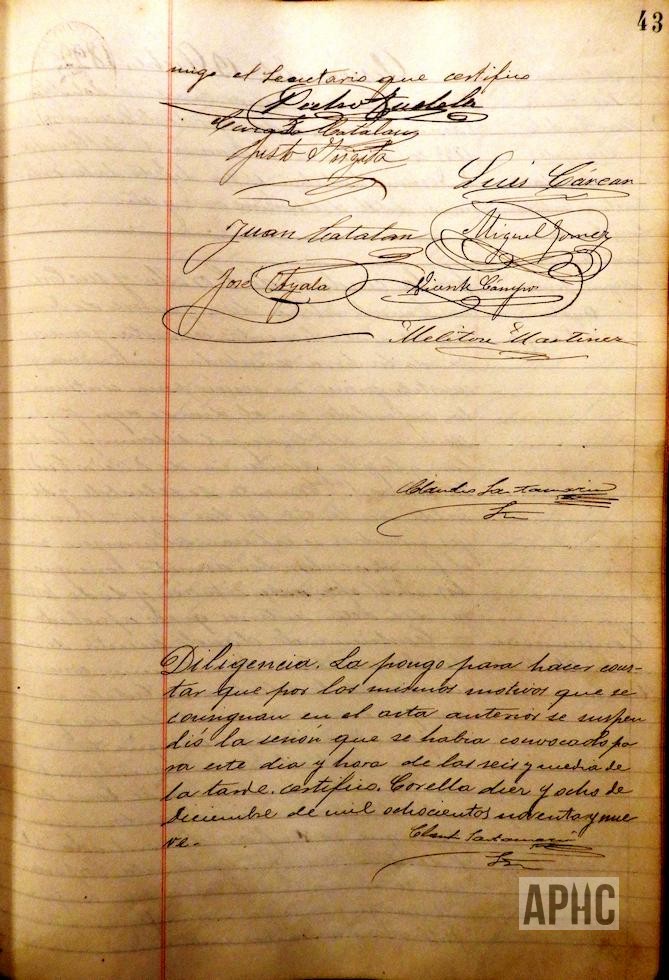 43
migo el Secretario que certifico
Pedro Tudela
Catalan
Justo
Luis Cárcar
Juan Catalan
Miguel Gomez
José Ayala
Vicente Campo
Meliton Martinez
Claudio Santamaria
Diligencia. La pongo para hacer cons-
tar que por los mismos motivos que se
consignan en el acta anterior se suspen
dió la sesión que se habia convocado pa
ra este dia y hora de las seis y media de
la tarde. certifico. Corella diez y ocho de
Diciembre de mil ochocientos noventa y nue
ve.-
Santamaria
APHC